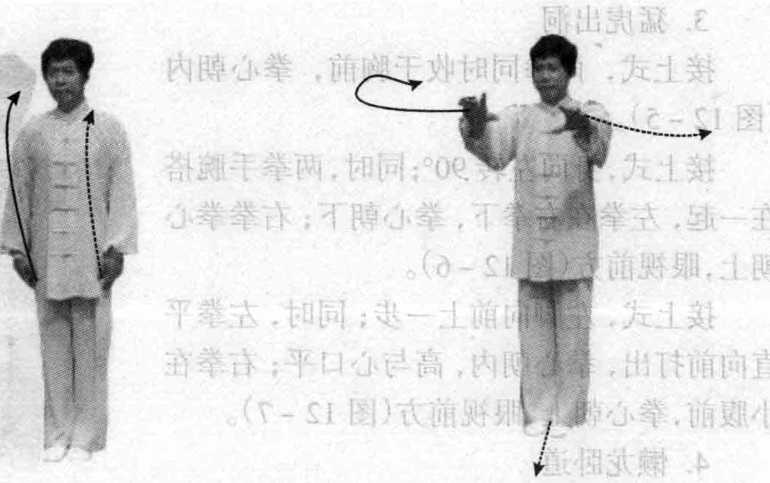 3. 猛虎出洞
接上式，同时收于胸前，拳心朝内
图 12-5）
接上式，转 90°；同时，两拳手腕搭
在一起，左拳下，拳心朝下；右拳拳心
朝上，眼视前方（图 12-6）。
接上式，向前上一步；同时，左拳平
直向前打出，拳心朝内，高与心口平；右拳在
小腹前，拳心朝眼视前方（图 12-7）。
4. 懒龙卧道